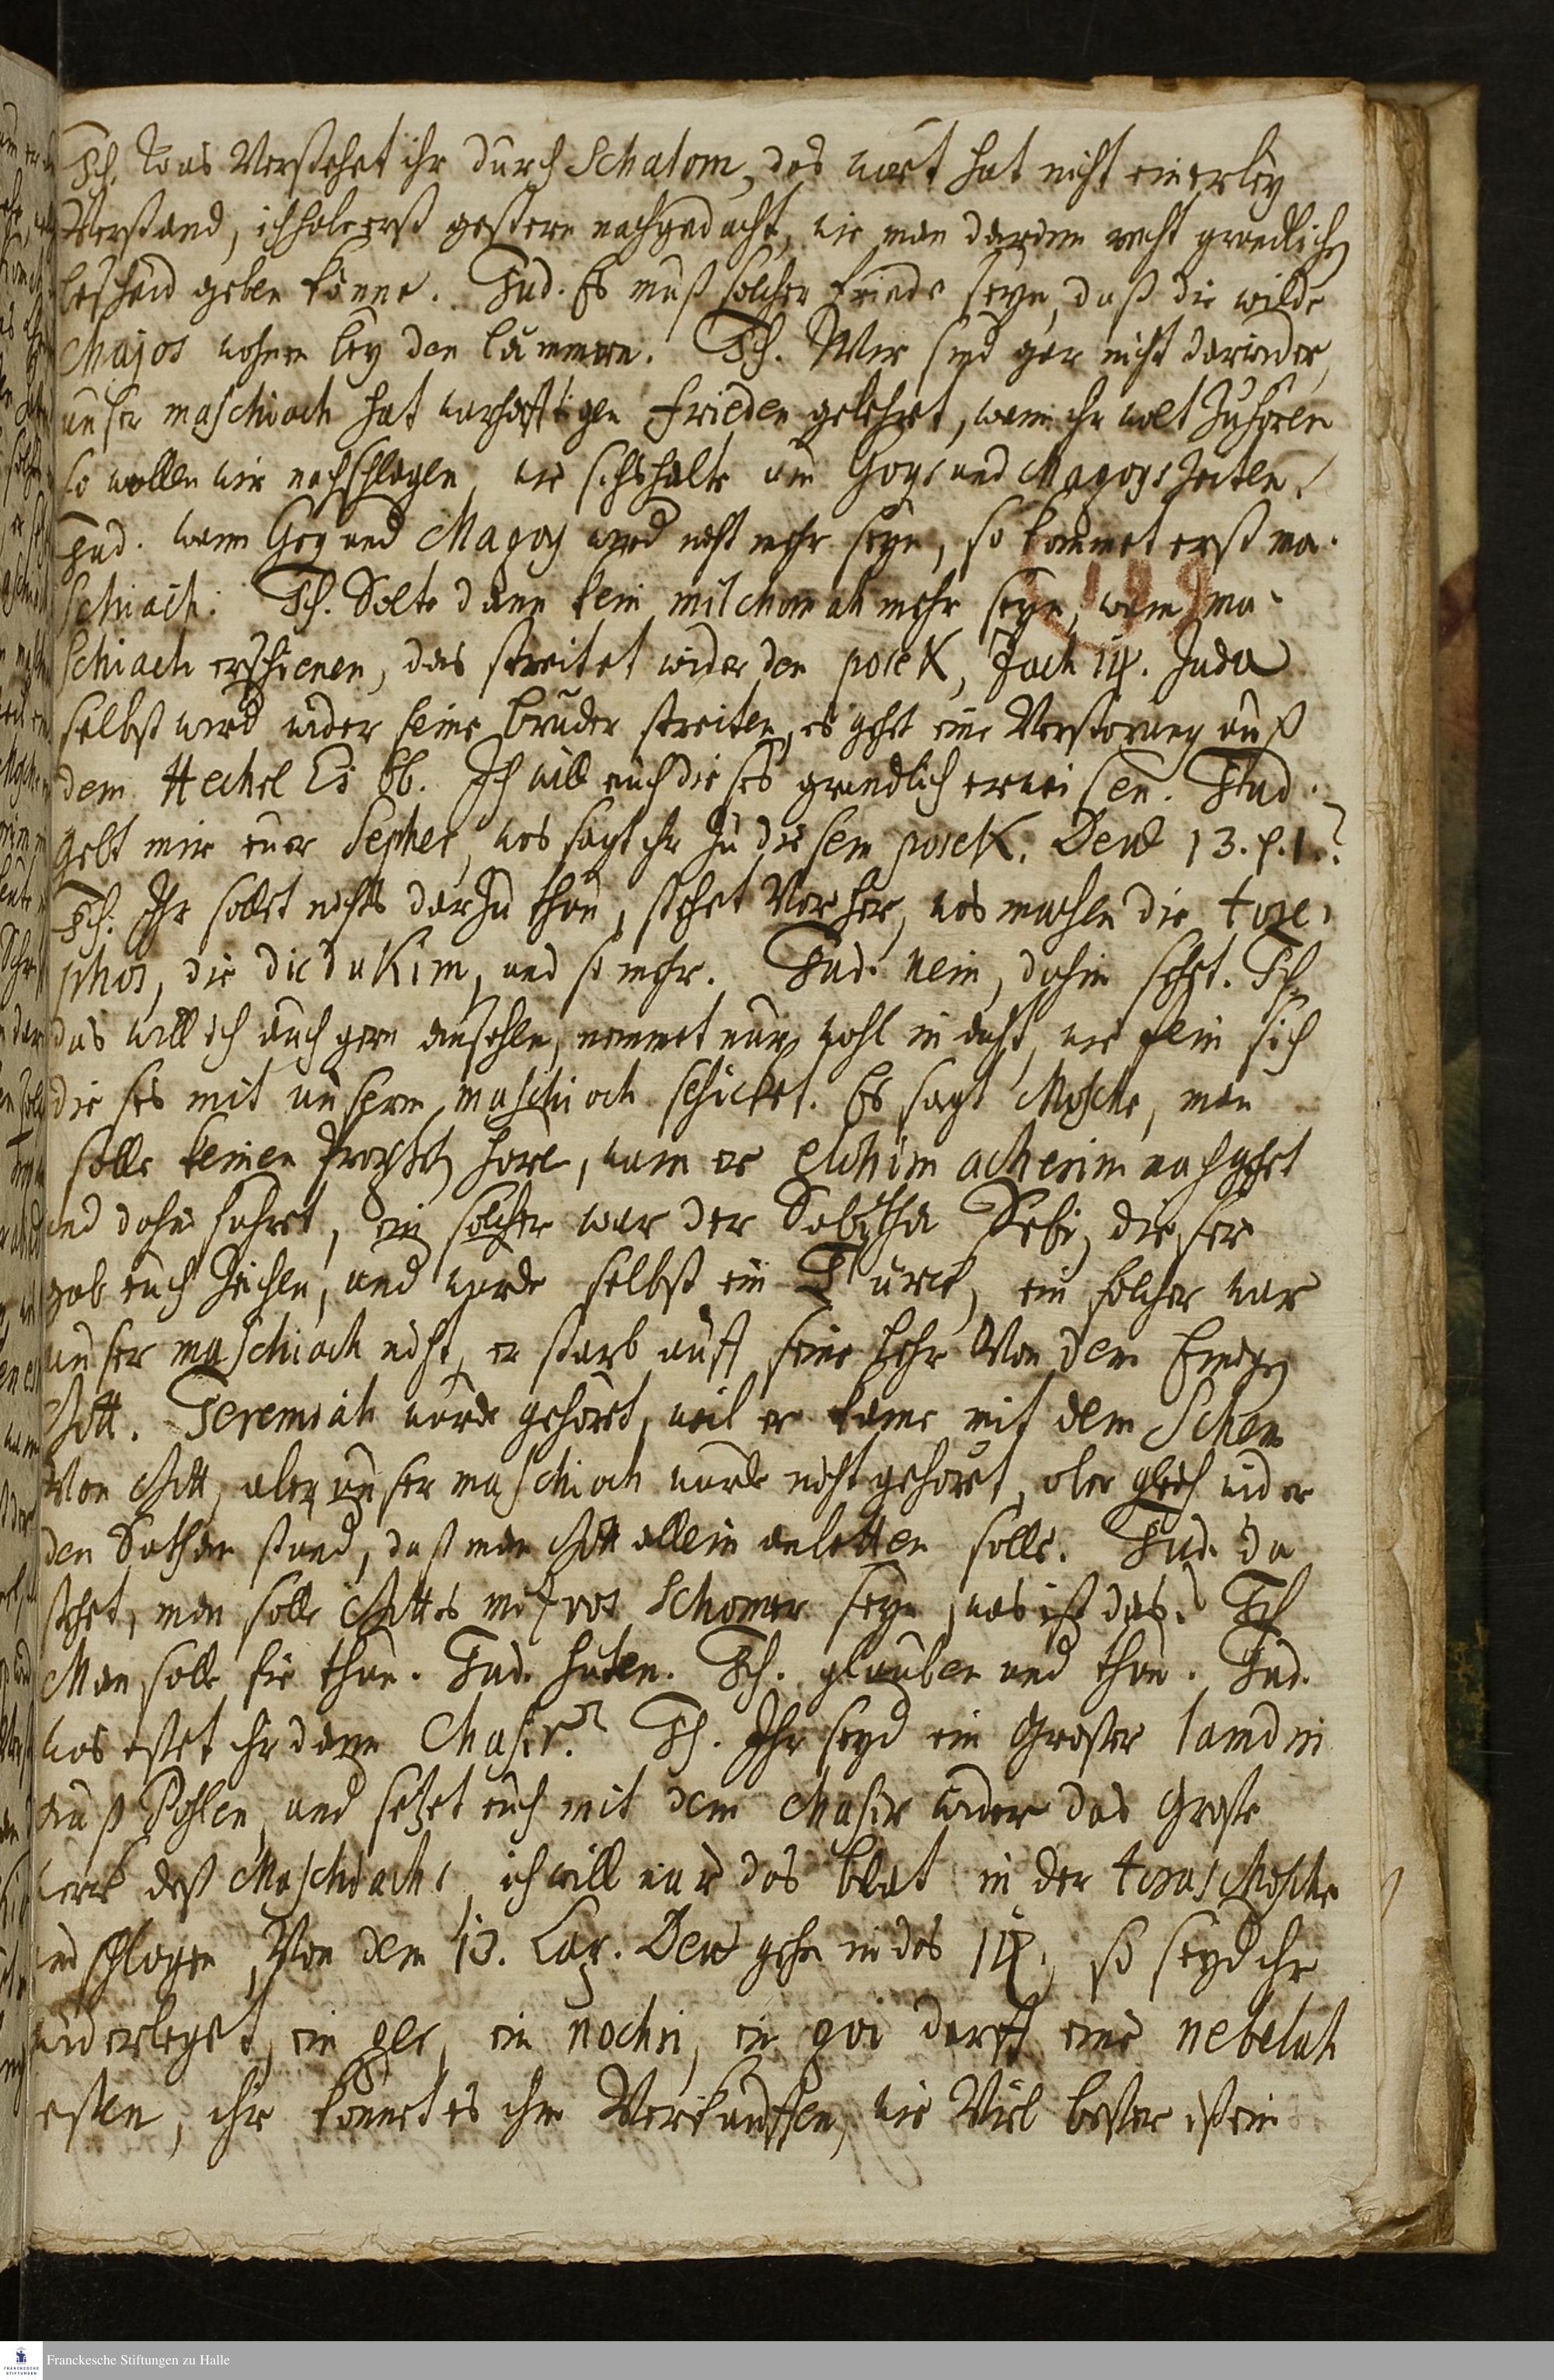 Ich. was Verstehet ihr durch Schalom, das wort hat nicht einerley
Verstand, ich habe erst gestern nachgedacht, wie man darinn recht grundlichen
bescheid geben könne. Jud. Es muß solcher friede seyn, daß die wilde
Chajos wohnen bey den lämmern. Ich. Wir sind gar nicht darwider,
unser maschiach hat warhafftigen frieden gelehret, wann ihr wolt zuhören
so wollen wir nachschlagen, wie sichs halte um Gogs und Magogs Zeiten.
Jud. wann Gog und Magog wird nicht mehr seyn, so kommet erst ma-
schiach. Ich. Solte dann kein milchomah mehr seyn, wann ma-
schiach erschienen, das streitet wider den posek, Zach 14. Juda
selbst wird wider seine brüder streiten, es gehet eine Verstörung auß
dem Hechel Es 66. Ich will euch dieses grundlich erweisen. Jud.
gebt mir euer Sepher, was sagt ihr zu diesem posek. Deut 13. p. 1.?
Ich. Ihr sollet nichts darzu thun, stehet Vorher, was machen die tose-
phos, die dicdukim, und so mehr. Jud. Nein, dahin sehet. Ich
das will ich auch gern ansehen, nemmet nur wohl in acht, wie fein sich
dieses mit unserm maschiach schicket. Es sagt Mosche, man
solle keinen Propheten hören, wann er elohim acherim nachgehet
und dahin führet, ein solcher war der Sabytha Sebi, dieser
gab euch Zeichen, und wurde selbst ein Türck, ein solcher war
unser maschiach nicht, er starb auff seine Lehr Von dem Einigen
Gott. Jeremiah wurde gehört, weil er kame mit dem Schem
Von Gott, aber unser maschiach wurde nicht gehört, ober gleich wider
den Sathan stund, daß man Gott allein anbetten solle. Jud. da
stehet, man solle Gottes mizvos Schomer seyn, was ist das. Ich
Man solle sie thun. Jud. huten. Ich. glauben und thun. Jud.
was esset ihr dann Chasir? Ich. Ihr seyd ein Großer lamdin
auß Pohlen, und setzet euch mit dem chasir wider das Große
werck deß Maschiachs, ich will nur das blat in der toras Mosche
umschlagen, Von dem 13. Cap. Deut gehn in das 14., so seyd ihr
widerleget, ein ger, ein nochri, ein goi darff eine nebelah
essen, ihr könnet es ihm Verkauffen, wie Viel besser ist ein
Franckesche Stiftungen zu Halle